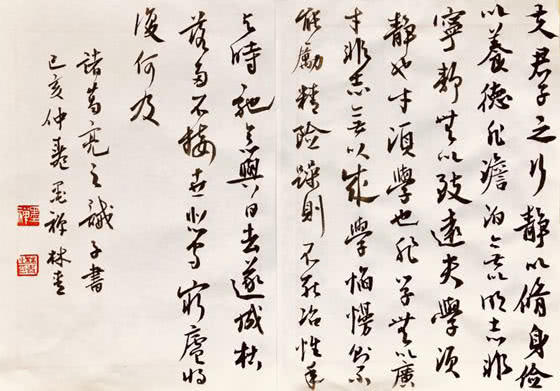 夫君子之行静以脩身儉
以養德非澹泊無以明志非
寧静無以致遠夫學須
静也才須學也非學無以廣
才非志無以成學慆慢則不
能勵精險躁則不能冶性年
与時馳意與日去遂成枯
落多不接世悲守窮廬将
復何及
諸葛亮之誡子書
己亥仲 墨禅林